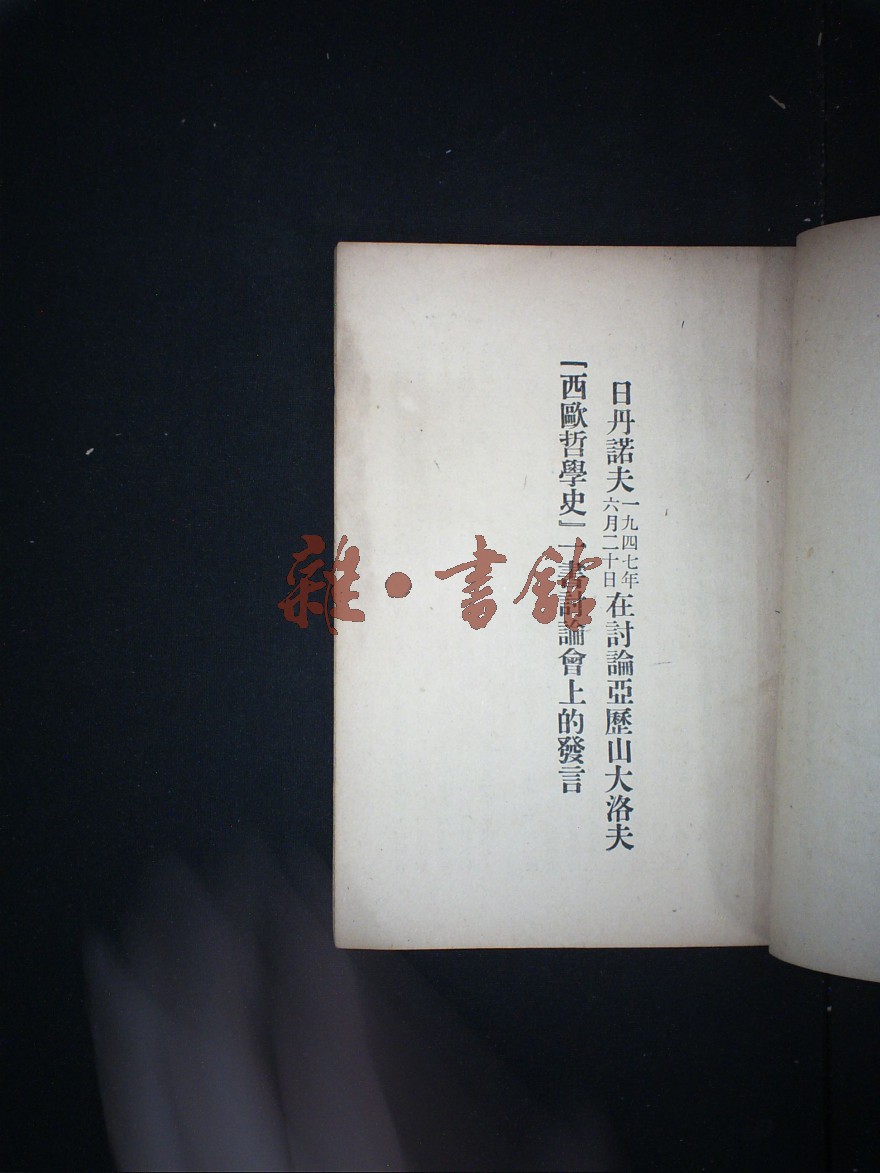 日丹諾夫一九四七年六月二十日在討論亞歷山大洛夫
「西歐哲學史」一書討論會上的發言
雜·書館